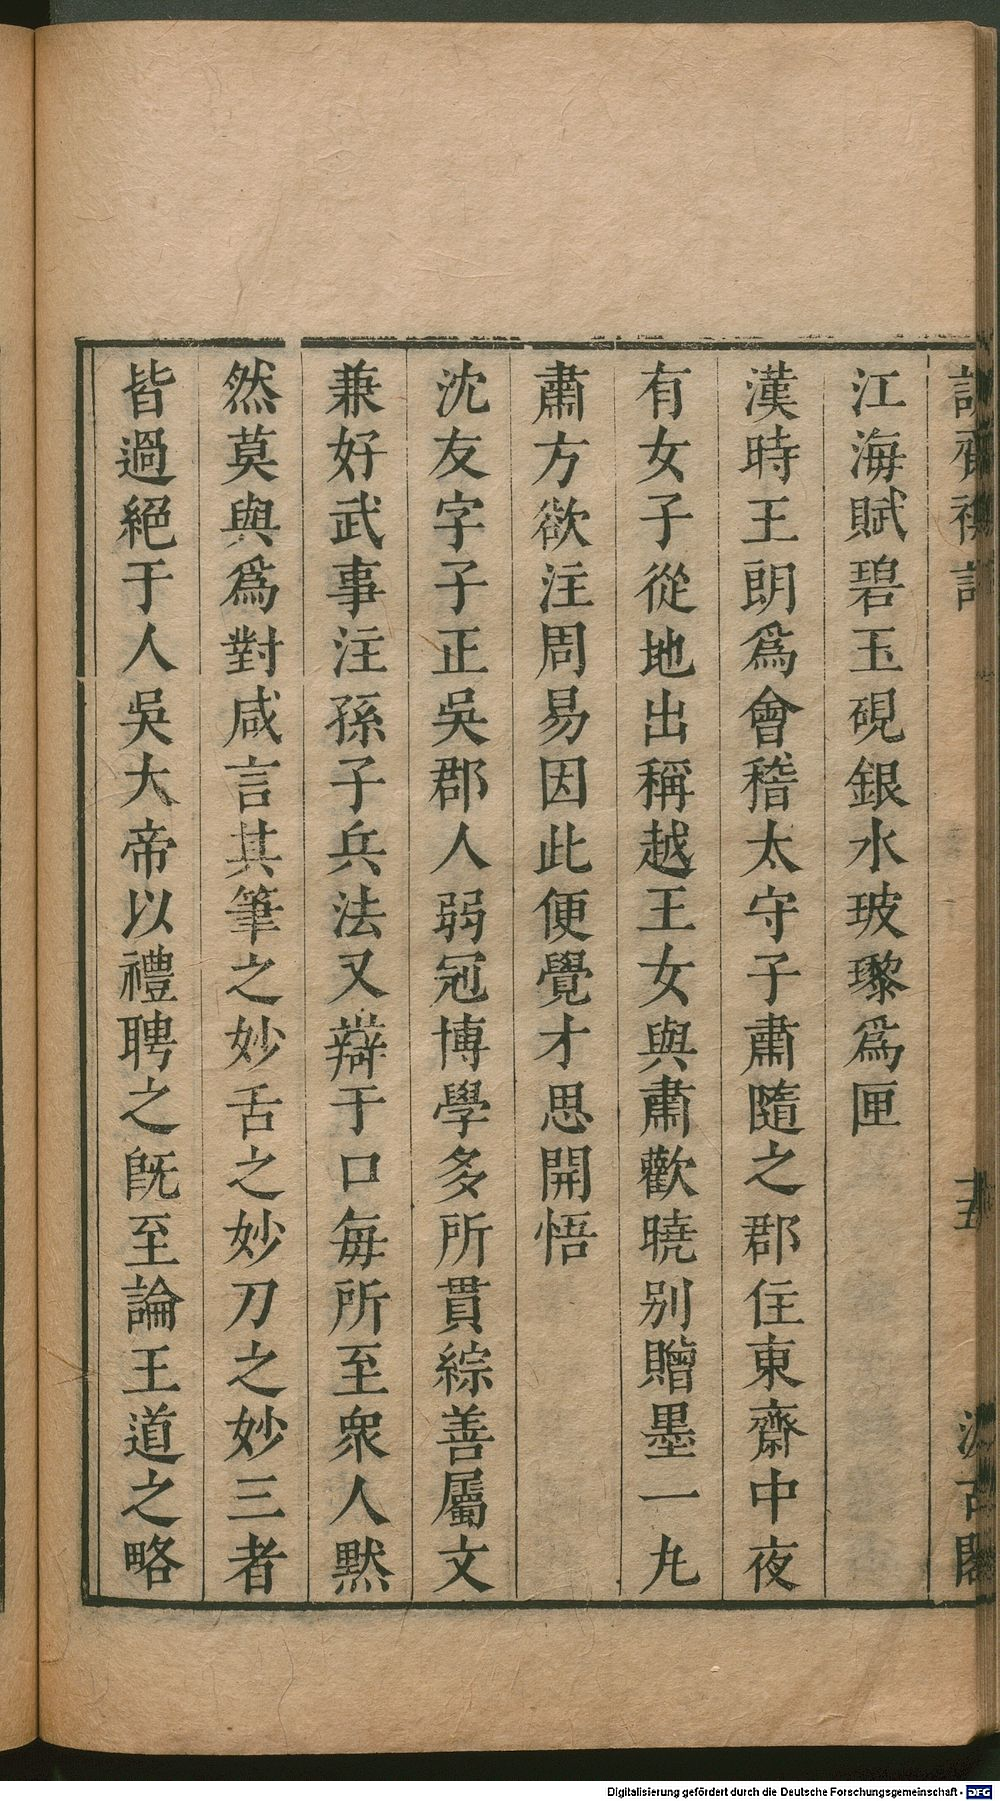 江海賦碧玉硯銀水玻瓈爲匣
漢時王朗爲會稽太守子肅隨之郡住東齋中夜
有女子從地出稱越王女與肅歡曉别贈墨一丸
肅方欲注周易因此便覺才思開悟
沈友字子正吳郡人弱冠博學多所貫綜善屬文
兼好武事注孫子兵法又辯于口每所至衆人黙
然莫與爲對咸言其筆之妙舌之妙刀之妙三者
皆過絕于人吳大帝以禮聘之旣至論王道之略
Digitalisierung gefördert durch die Deutsche Forschungsgemeinschaft - DFG